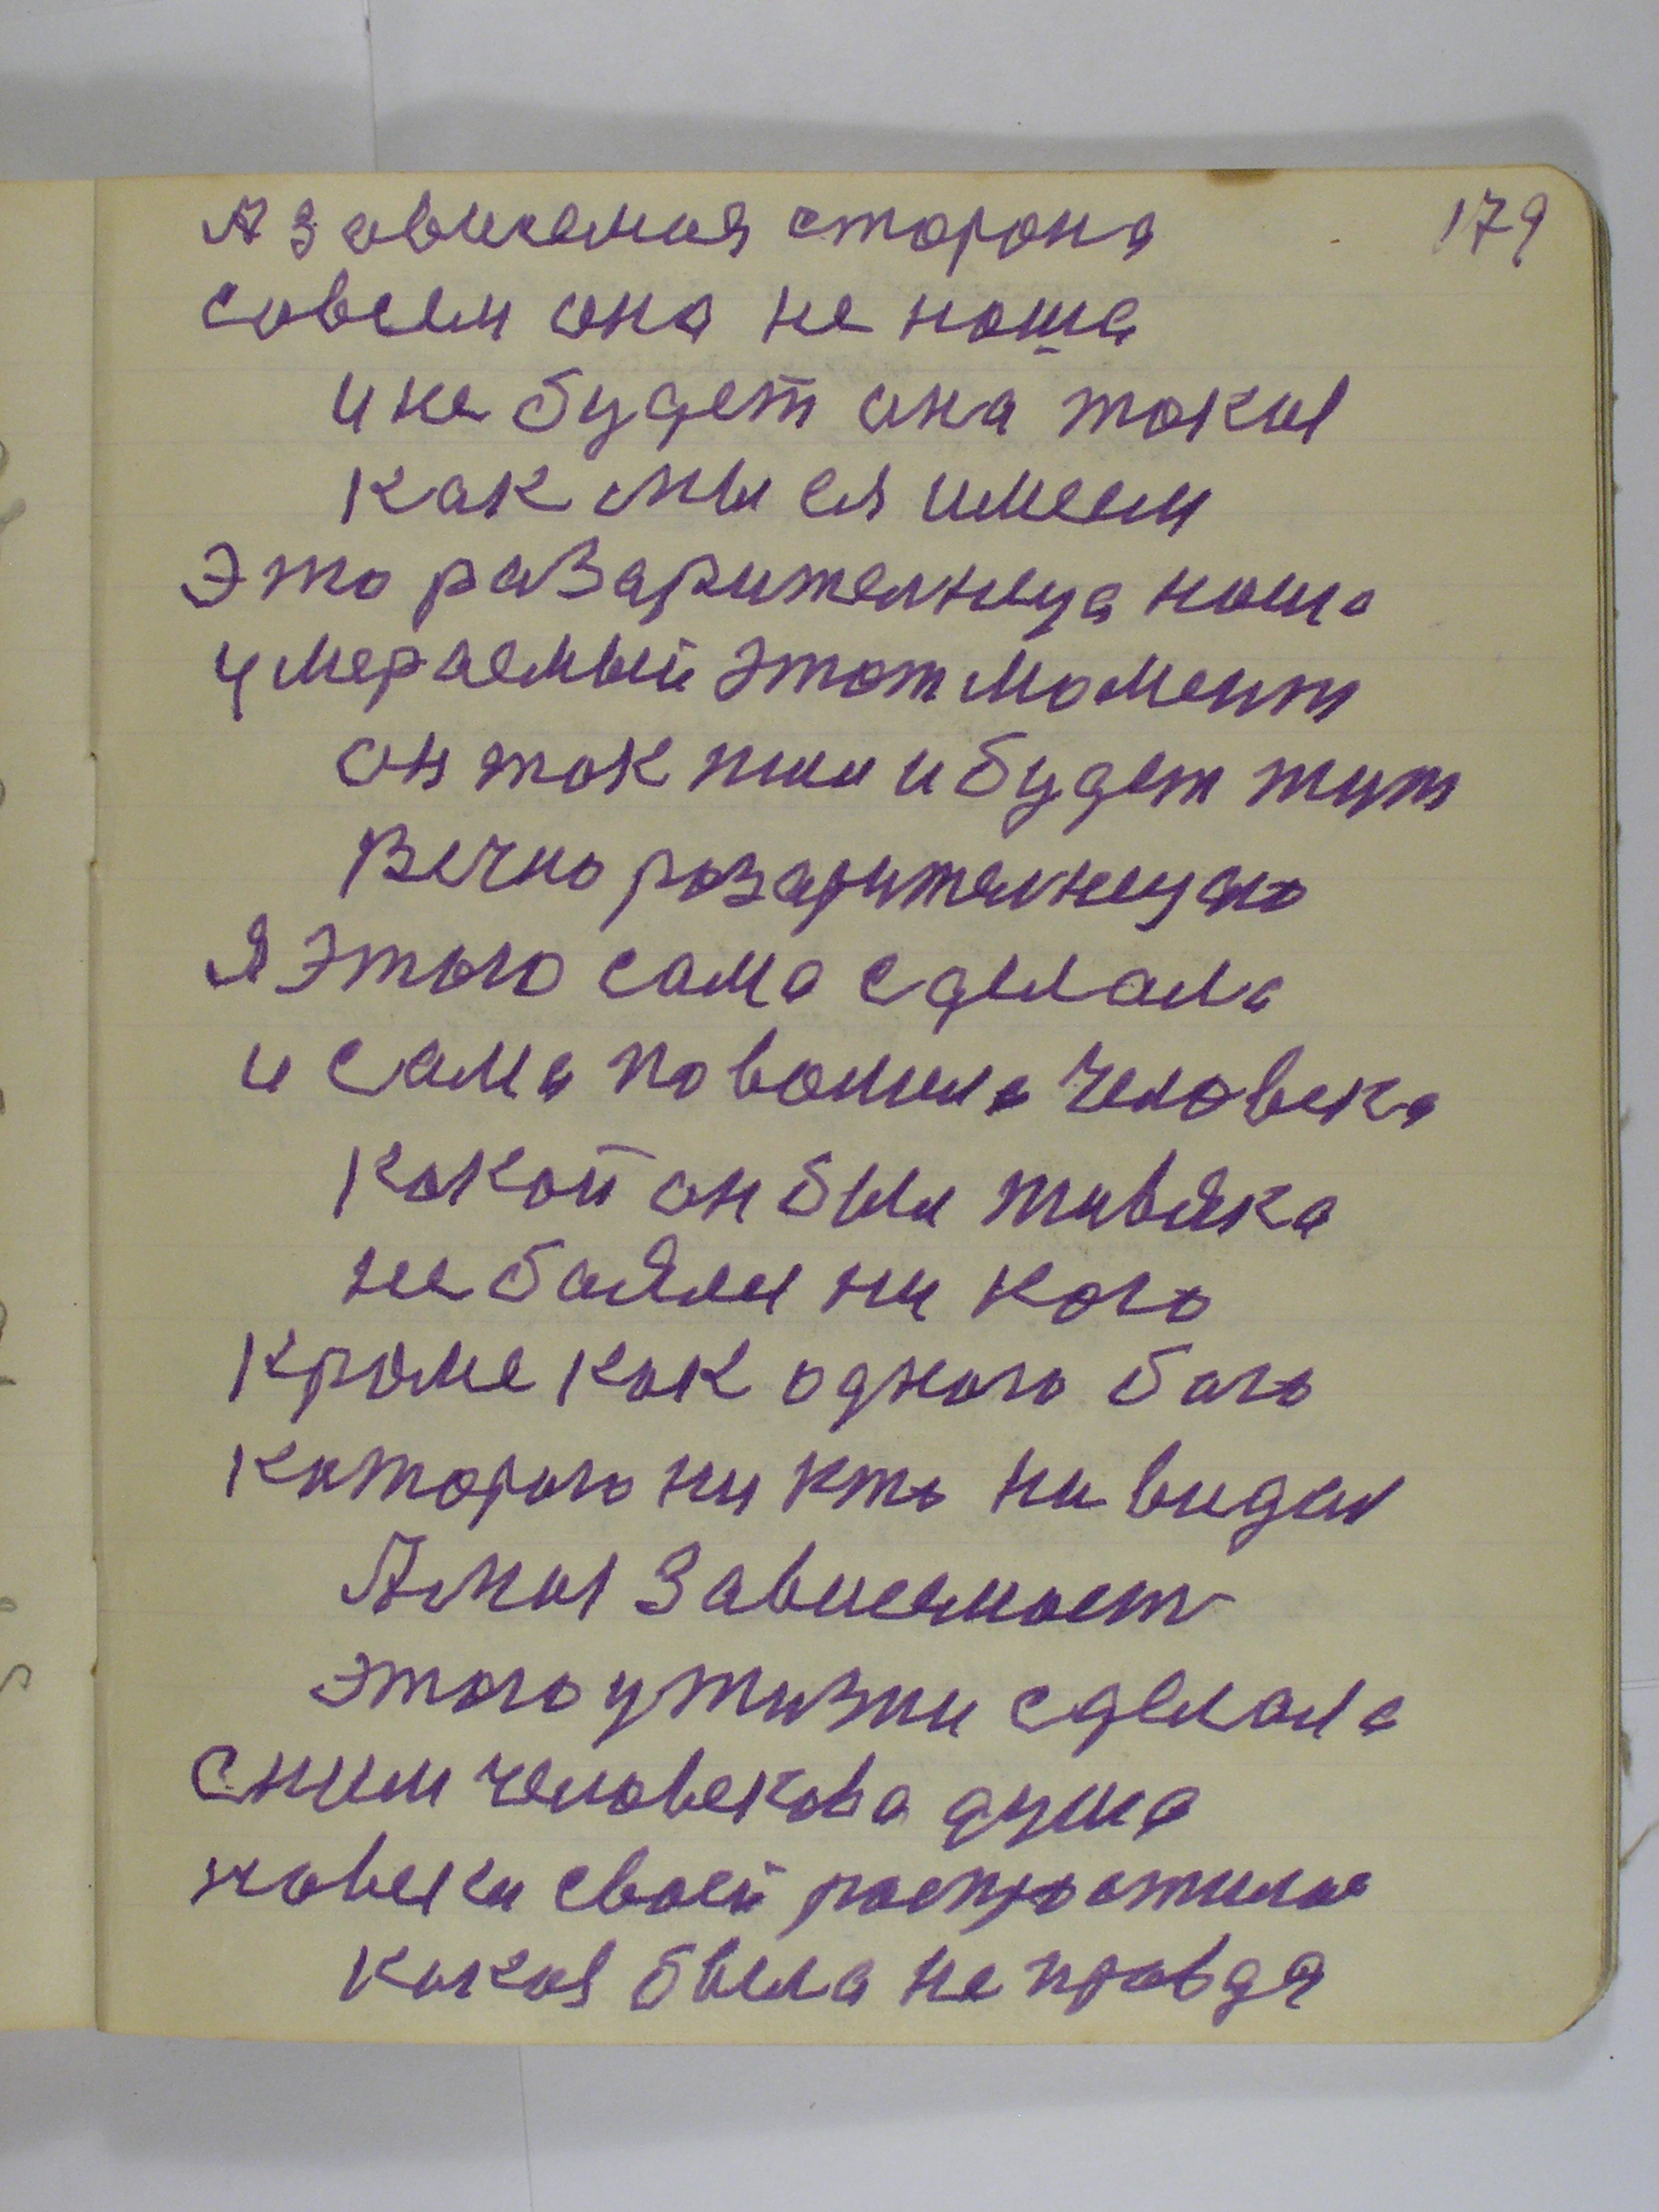 179
А зависемая сторона
совсем она не наша
и не будет она такая
как мы ея имеем
Это разарителница наша
умераемый этот момент
он так жил и будет жит
Вечно разарителницаю
Я этого сама сделала
и сама повалила человека
какой он был живака
не баялся ни кого
кроме как одного бога
каторого ни кто ни видал
А мая Зависемаст
этого у жизни сделала
с ним человекова душа
навеки своей распростилас
какая была не правда